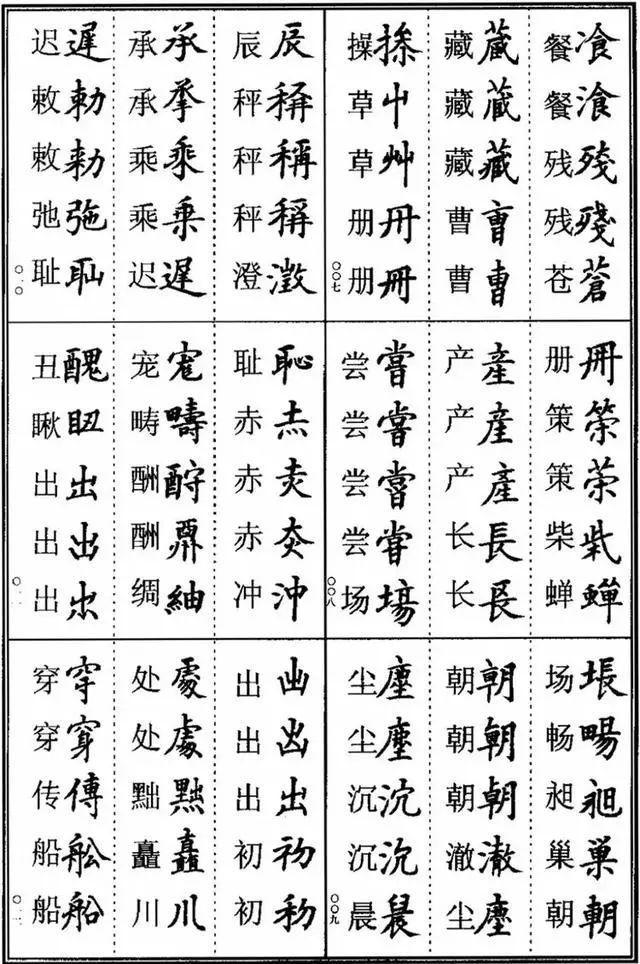 餐 飡
餐 飡
残 殘
残 殘
苍 蒼
藏 蔵
藏 蔵
藏 藏
曹 曺
曹 曹
操 㨅
草 屮
草 艸
册 冊
册 冊
〇〇七
册 冊
策 筞
策
柴
蝉 蟬
产 產
产 產
产 產
长 長
长 镸
尝 嘗
尝 嘗
尝 嘗
尝 甞
场 塲
〇〇八
场
畅 暘
昶
巢 巣
朝 朝
朝 朝
朝 朝
朝 朝
澈 澈
尘 塵
尘 塵
尘 塵
沉 沈
沉 沉
晨
〇〇九
辰 辰
秤
秤 稱
秤 稱
澄 澂
承 承
承
乘 乗
乘 乗
迟 遲
迟 遲
敕 勅
敕 勑
弛 㢮
耻 耻
〇一〇
耻 恥
赤 赤
赤
赤
冲 沖
宠
畴 疇
酬 酧
酬
绸 紬
丑 醜
瞅 䀔
出 出
出 出
出
〇一一
出
出
出 出
初 初
初
处 處
处 處
黜
矗 矗
川 川
穿 穿
穿
传 傳
船 舩
船 船
〇一二